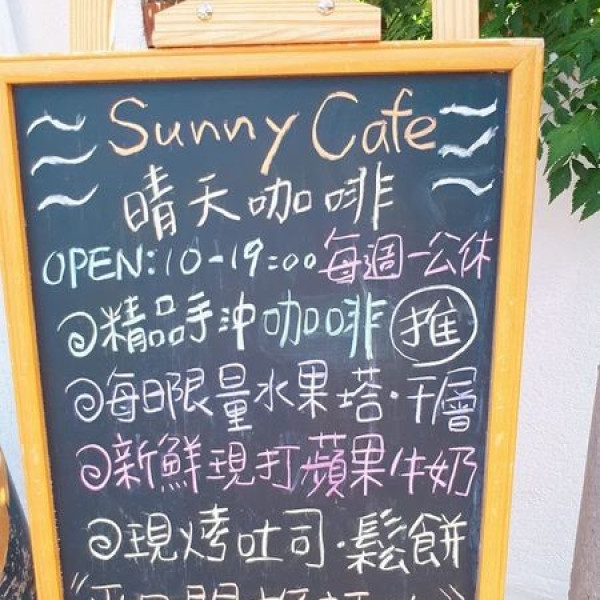 Sunny Cafe
晴天咖啡
OPEN:10-19:00每週一公休
@精品手沖咖啡 推
@每日限量水果塔·千層
@新鮮現打蘋果牛奶
@現烤吐司·鬆餅